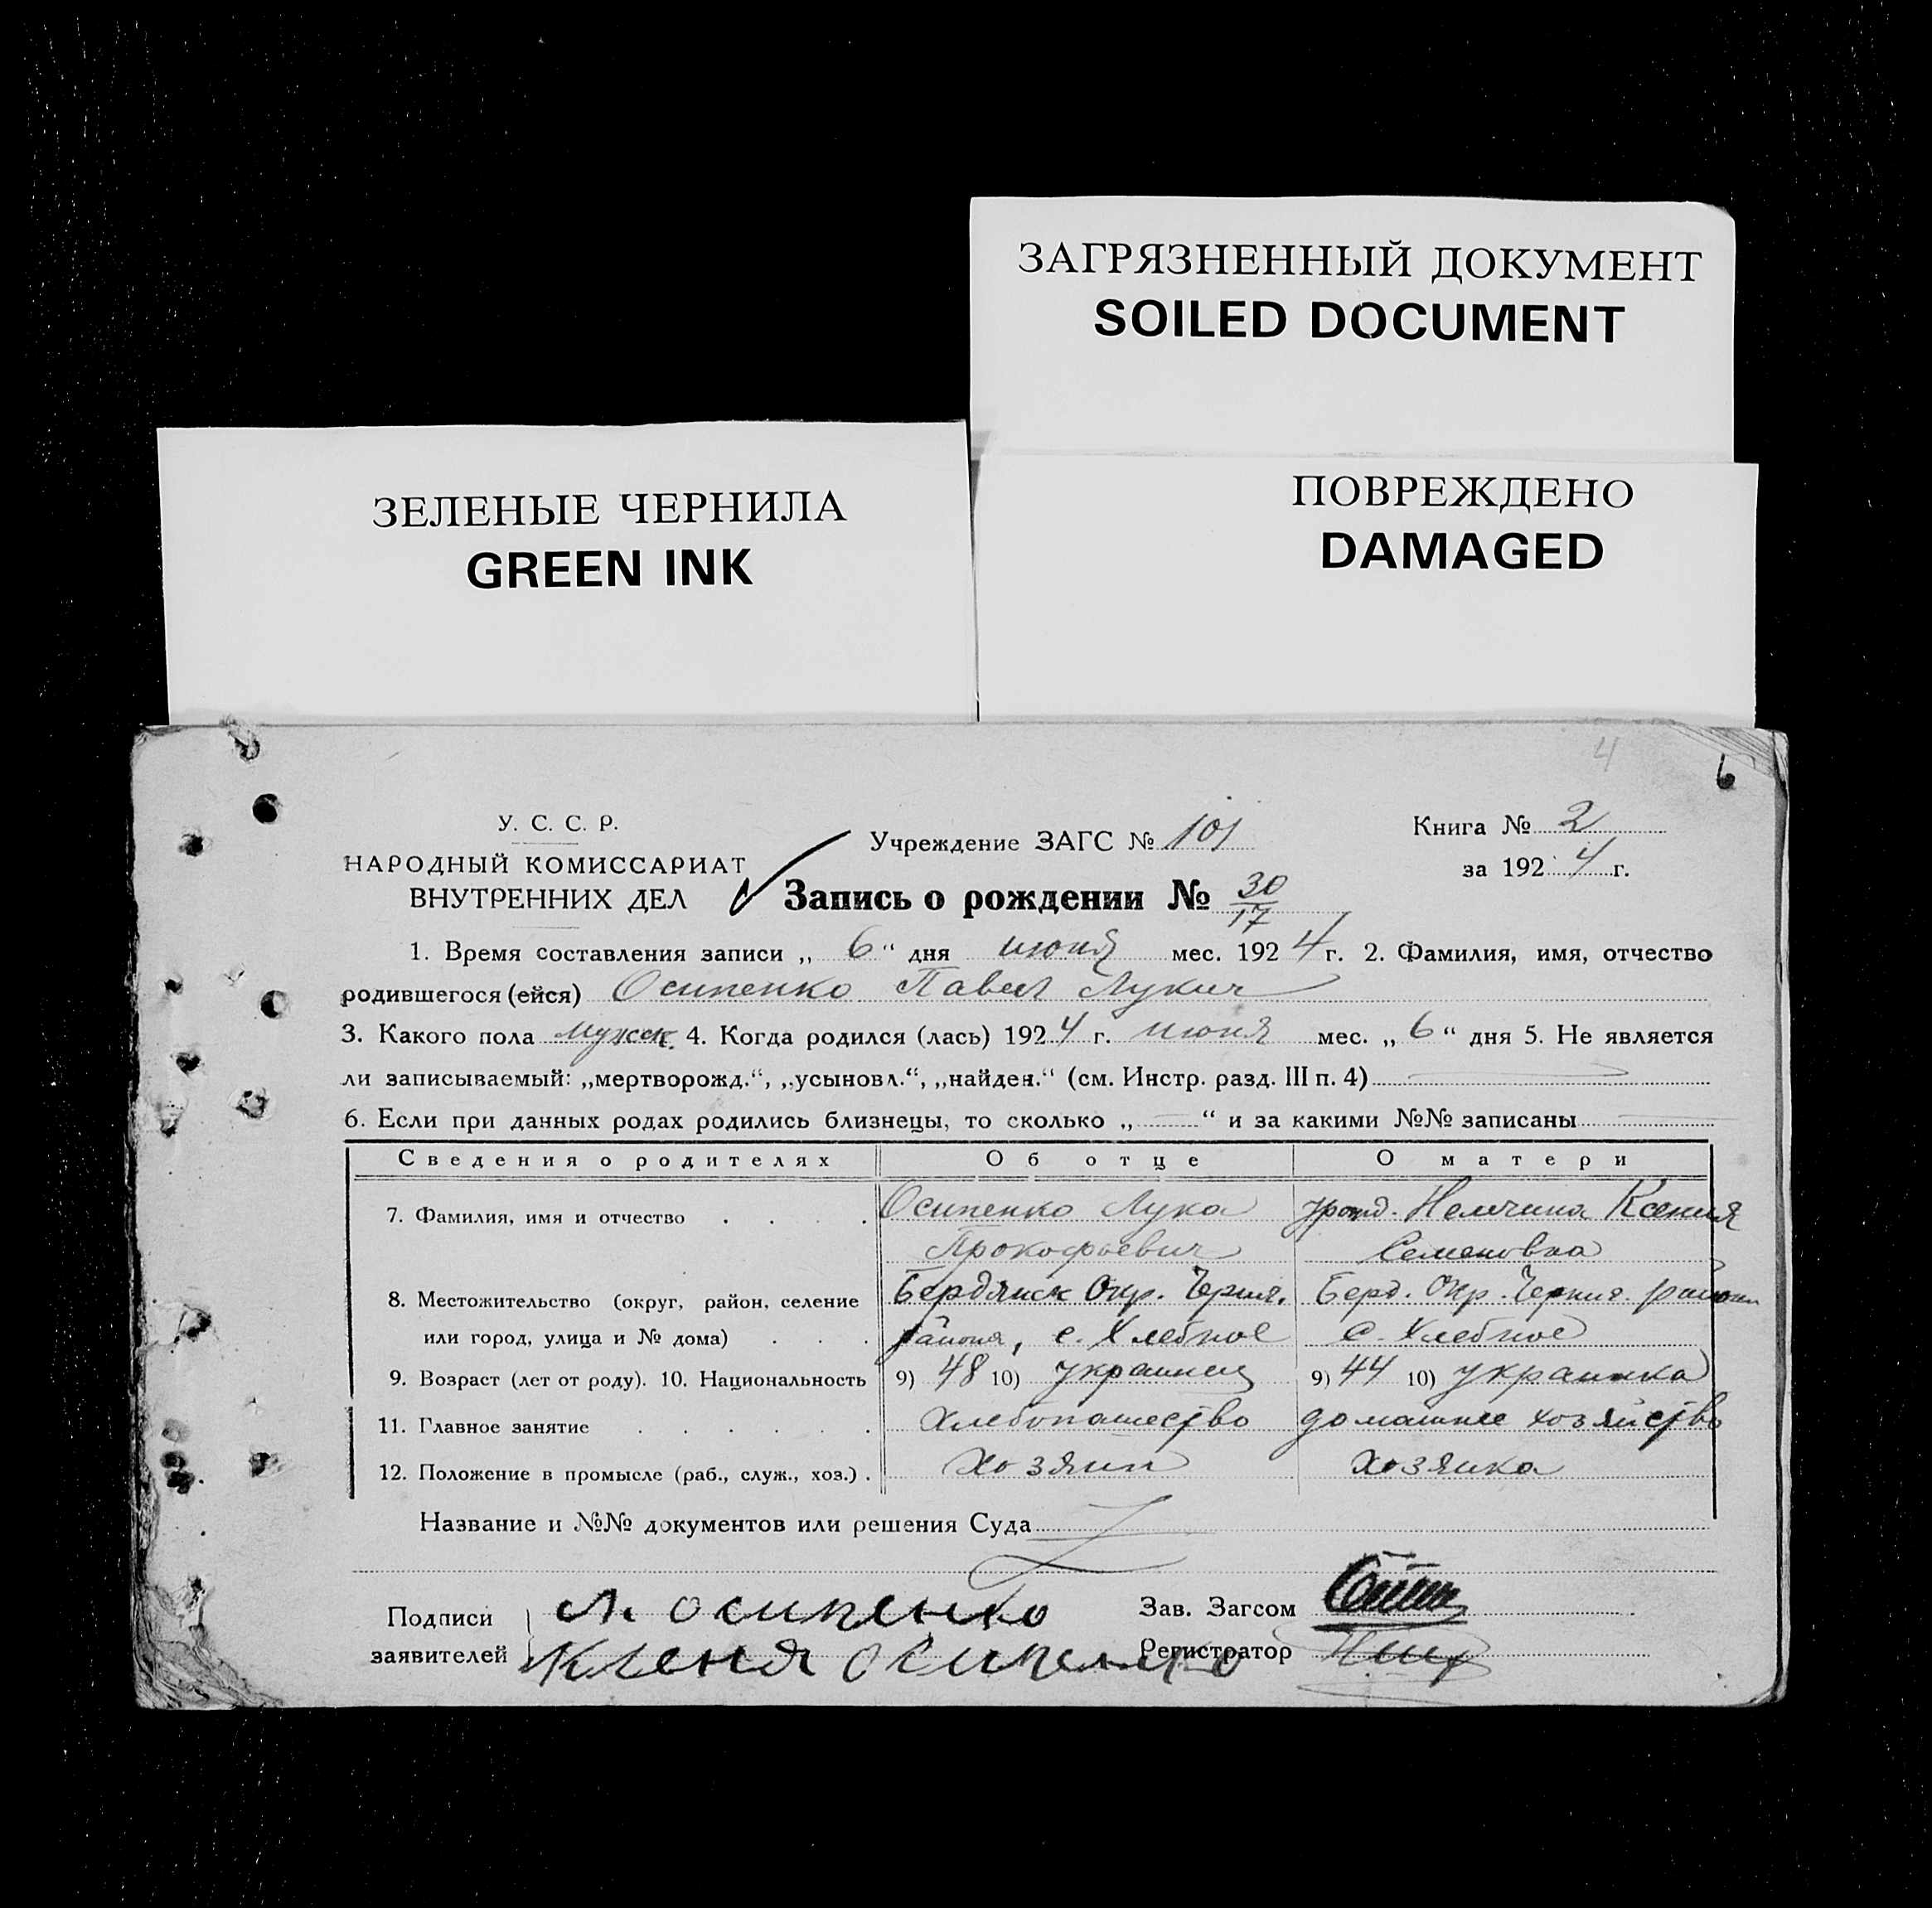 ЗАГРЯЗНЕННЫЙ ДОКУМЕНТ
SOILED DOCUMENT
ЗЕЛЕНЫЕ ЧЕРНИЛА
GREEN INK
ПОВРЕЖДЕНО
DAMAGED
4
6
У. С. С. Р.
НАРОДНЫЙ КОМИССАРИАТ
ВНУТРЕННИХ ДЕЛ
Учреждение ЗАГС № 101
Книга № 2
за 1924 г.
Запись о рождении № 30/17
1. Время составления записи „ 6 “ дня июня мес. 1924 г. 2. Фамилия, имя, отчество
родившегося (ейся) Осипенко Павел Лукич
3. Какого пола мужск. 4. Когда родился (лась) 1924 г. июня мес. „ 6 “ дня 5. Не является
ли записываемый: „мертворожд.“, „усыновл.“, „найден.“ (см. Инстр. разд. III п. 4)
6. Если при данных родах родились близнецы, то сколько „ — “ и за какими №№ записаны
Сведения о родителях Об отце О матери
7. Фамилия, имя и отчество Осипенко Лука урожд. Немчина Ксения
Прокофьевич Семеновна
8. Местожительство (округ, район, селение Бердянск Окр. Черниг. Берд. Окр. Черниг. района
или город, улица и № дома) района, с. Хлебное с. Хлебное
9. Возраст (лет от роду). 10. Национальность 9) 48 10) украинец 9) 44 10) украинка
11. Главное занятие Хлебопашество домашнее хозяйство
12. Положение в промысле (раб., служ., хоз.) Хозяин Хозяйка
Название и №№ документов или решения Суда
Подписи Л. Осипенко Зав. Загсом
заявителей Ксеня Осипенко Регистратор